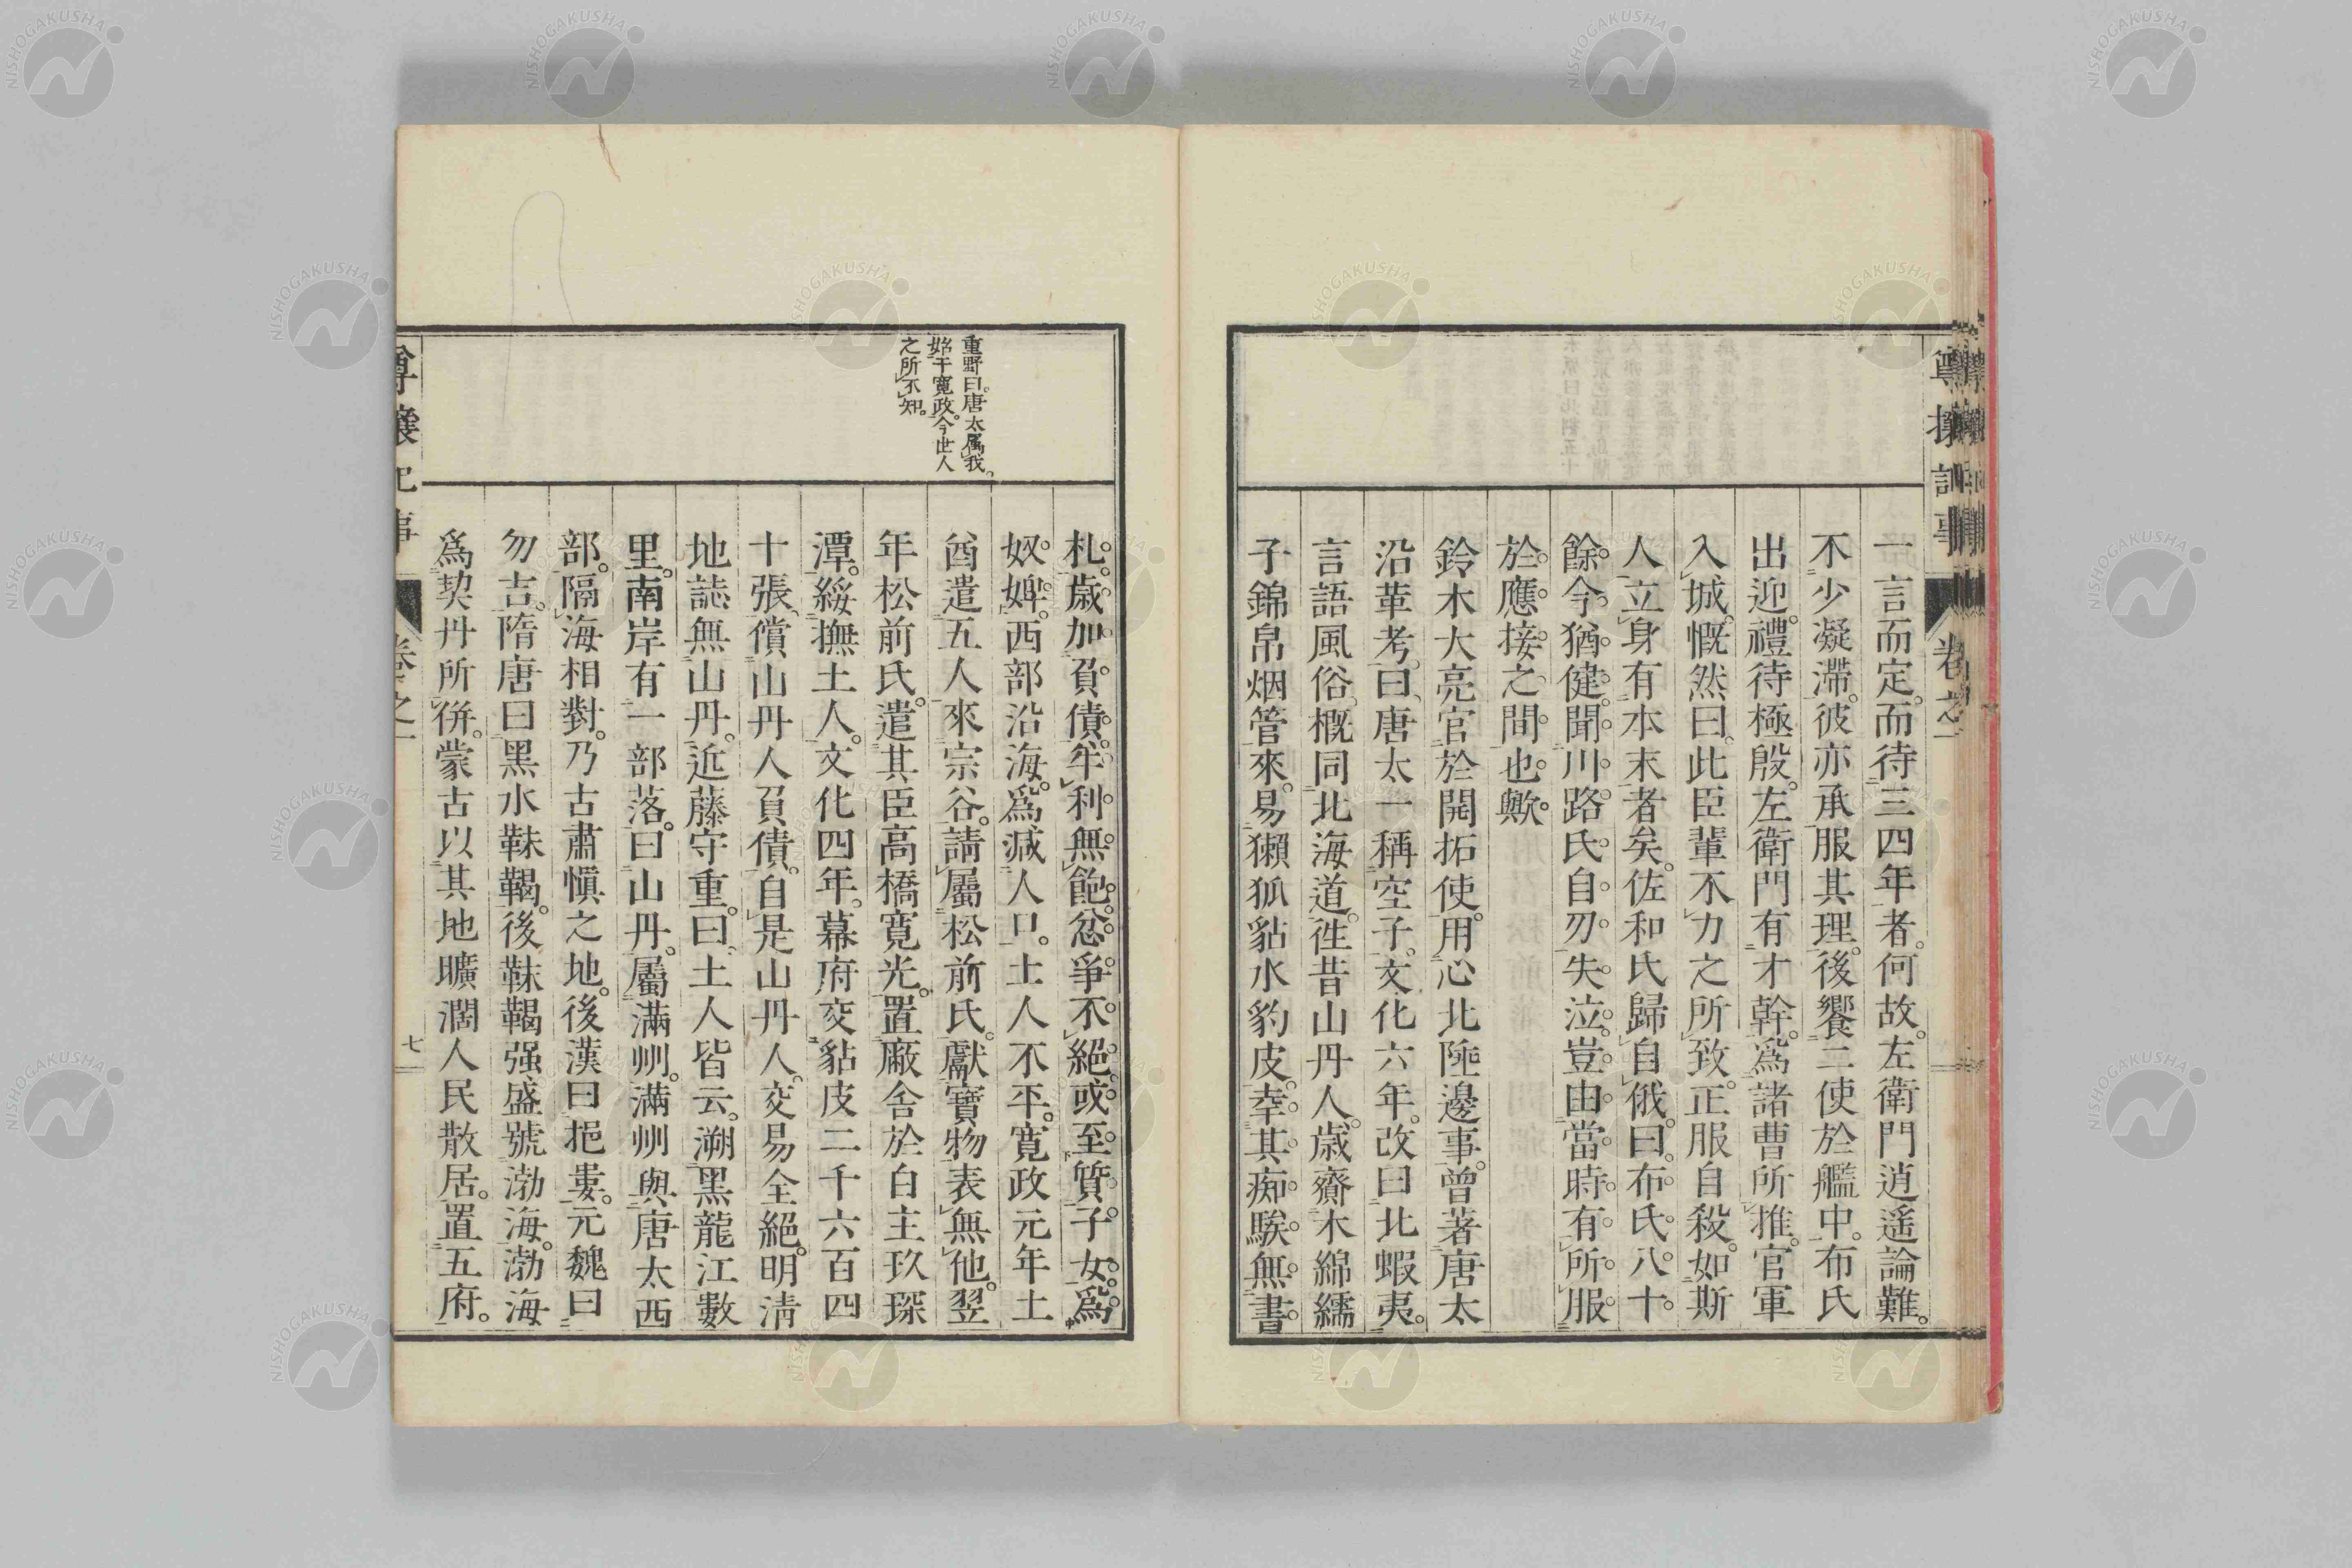 一言而定。而待三四年者。何故。左衛門逍遙論難。
不少凝滯。彼亦承服其理。後饗二使於艦中。布氏
出迎。禮待極殷。左衛門有才幹。爲諸曹所推。官軍
入城。慨然曰。此臣輩不力之所致。正服自殺。如斯
人立身有本末者矣。佐和氏歸自俄。曰。布氏。八十
餘。今猶健。聞川路氏自刃。失泣。豈由當時有所服
於應接之間也歟。
鈴木大亮官於開拓使。用心北陲邊事。曾著唐太
沿革考。曰、唐太一稱空子。文化六年。改曰北蝦夷。
言語風俗、概同北海道。徃昔山丹人。歳齎木綿繻
子錦帛烟管來。易獺狐貂水豹皮。幸其痴騃無書
札。歳加負債。牟利無飽。忿爭不絕。或至質子女。爲
奴婢。西部沿海。爲减人口。土人不平。寛政元年土
酋遣五人來宗谷。請屬松前氏。獻寶物表無他。翌
年松前氏。遣其臣高橋寛光。置廠舎於白主玖琛
潭。綏撫土人。文化四年。幕府交貂皮二千六百四
十張、償山丹人負債。自是山丹人。交易全絕。明淸
地誌無山丹。近藤守重。曰、土人皆云。溯黑龍江數
里。南岸有一部落。曰山丹。屬滿州。滿州與唐太西
部。隔海相對。乃古肅愼之地。後漢曰挹婁。元魏曰
勿吉。隋唐曰黑水靺鞨。後靺鞨强盛號渤海。渤海
爲契丹所併。蒙古以其地曠濶人民散居。置五府。
重野曰。唐太屬我。
始于寛政。今世人
之所不知。
卷之一
七